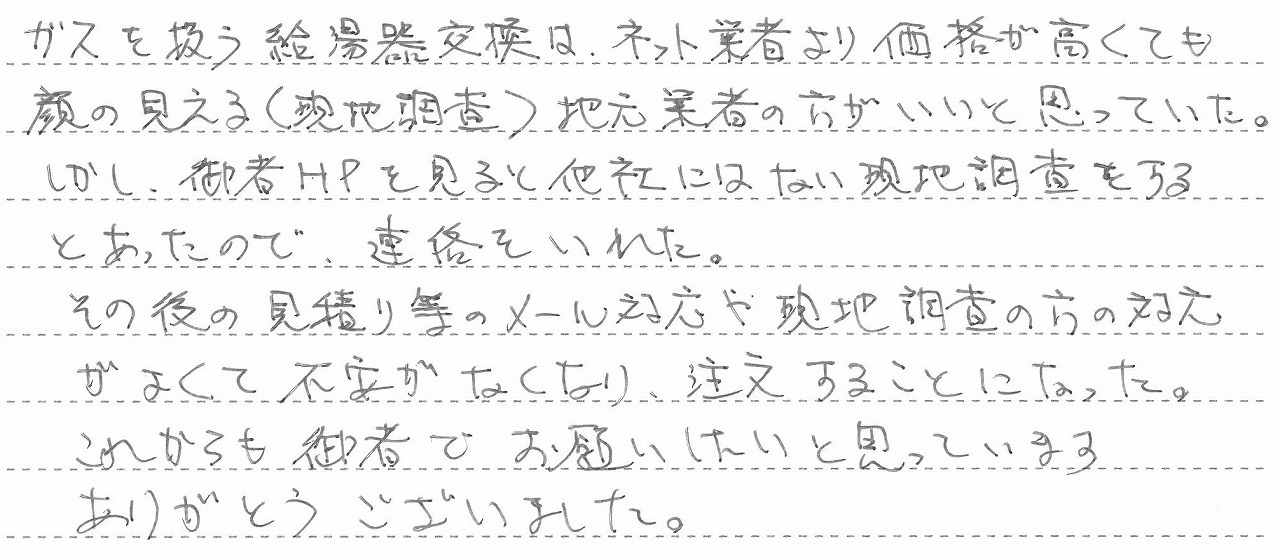 ガスを扱う給湯器交換は、ネット業者より価格が高くても
顔の見える(現地調査)地元業者の方がいいと思っていた。
しかし、御者HPを見ると他社にはない現地調査をする
とあったので、連絡をいれた。
その後の見積り等のメール対応や現地調査の方の対応
がよくて不安がなくなり、注文することになった。
これからも御者でお願いしたいと思っています
ありがとうございました。